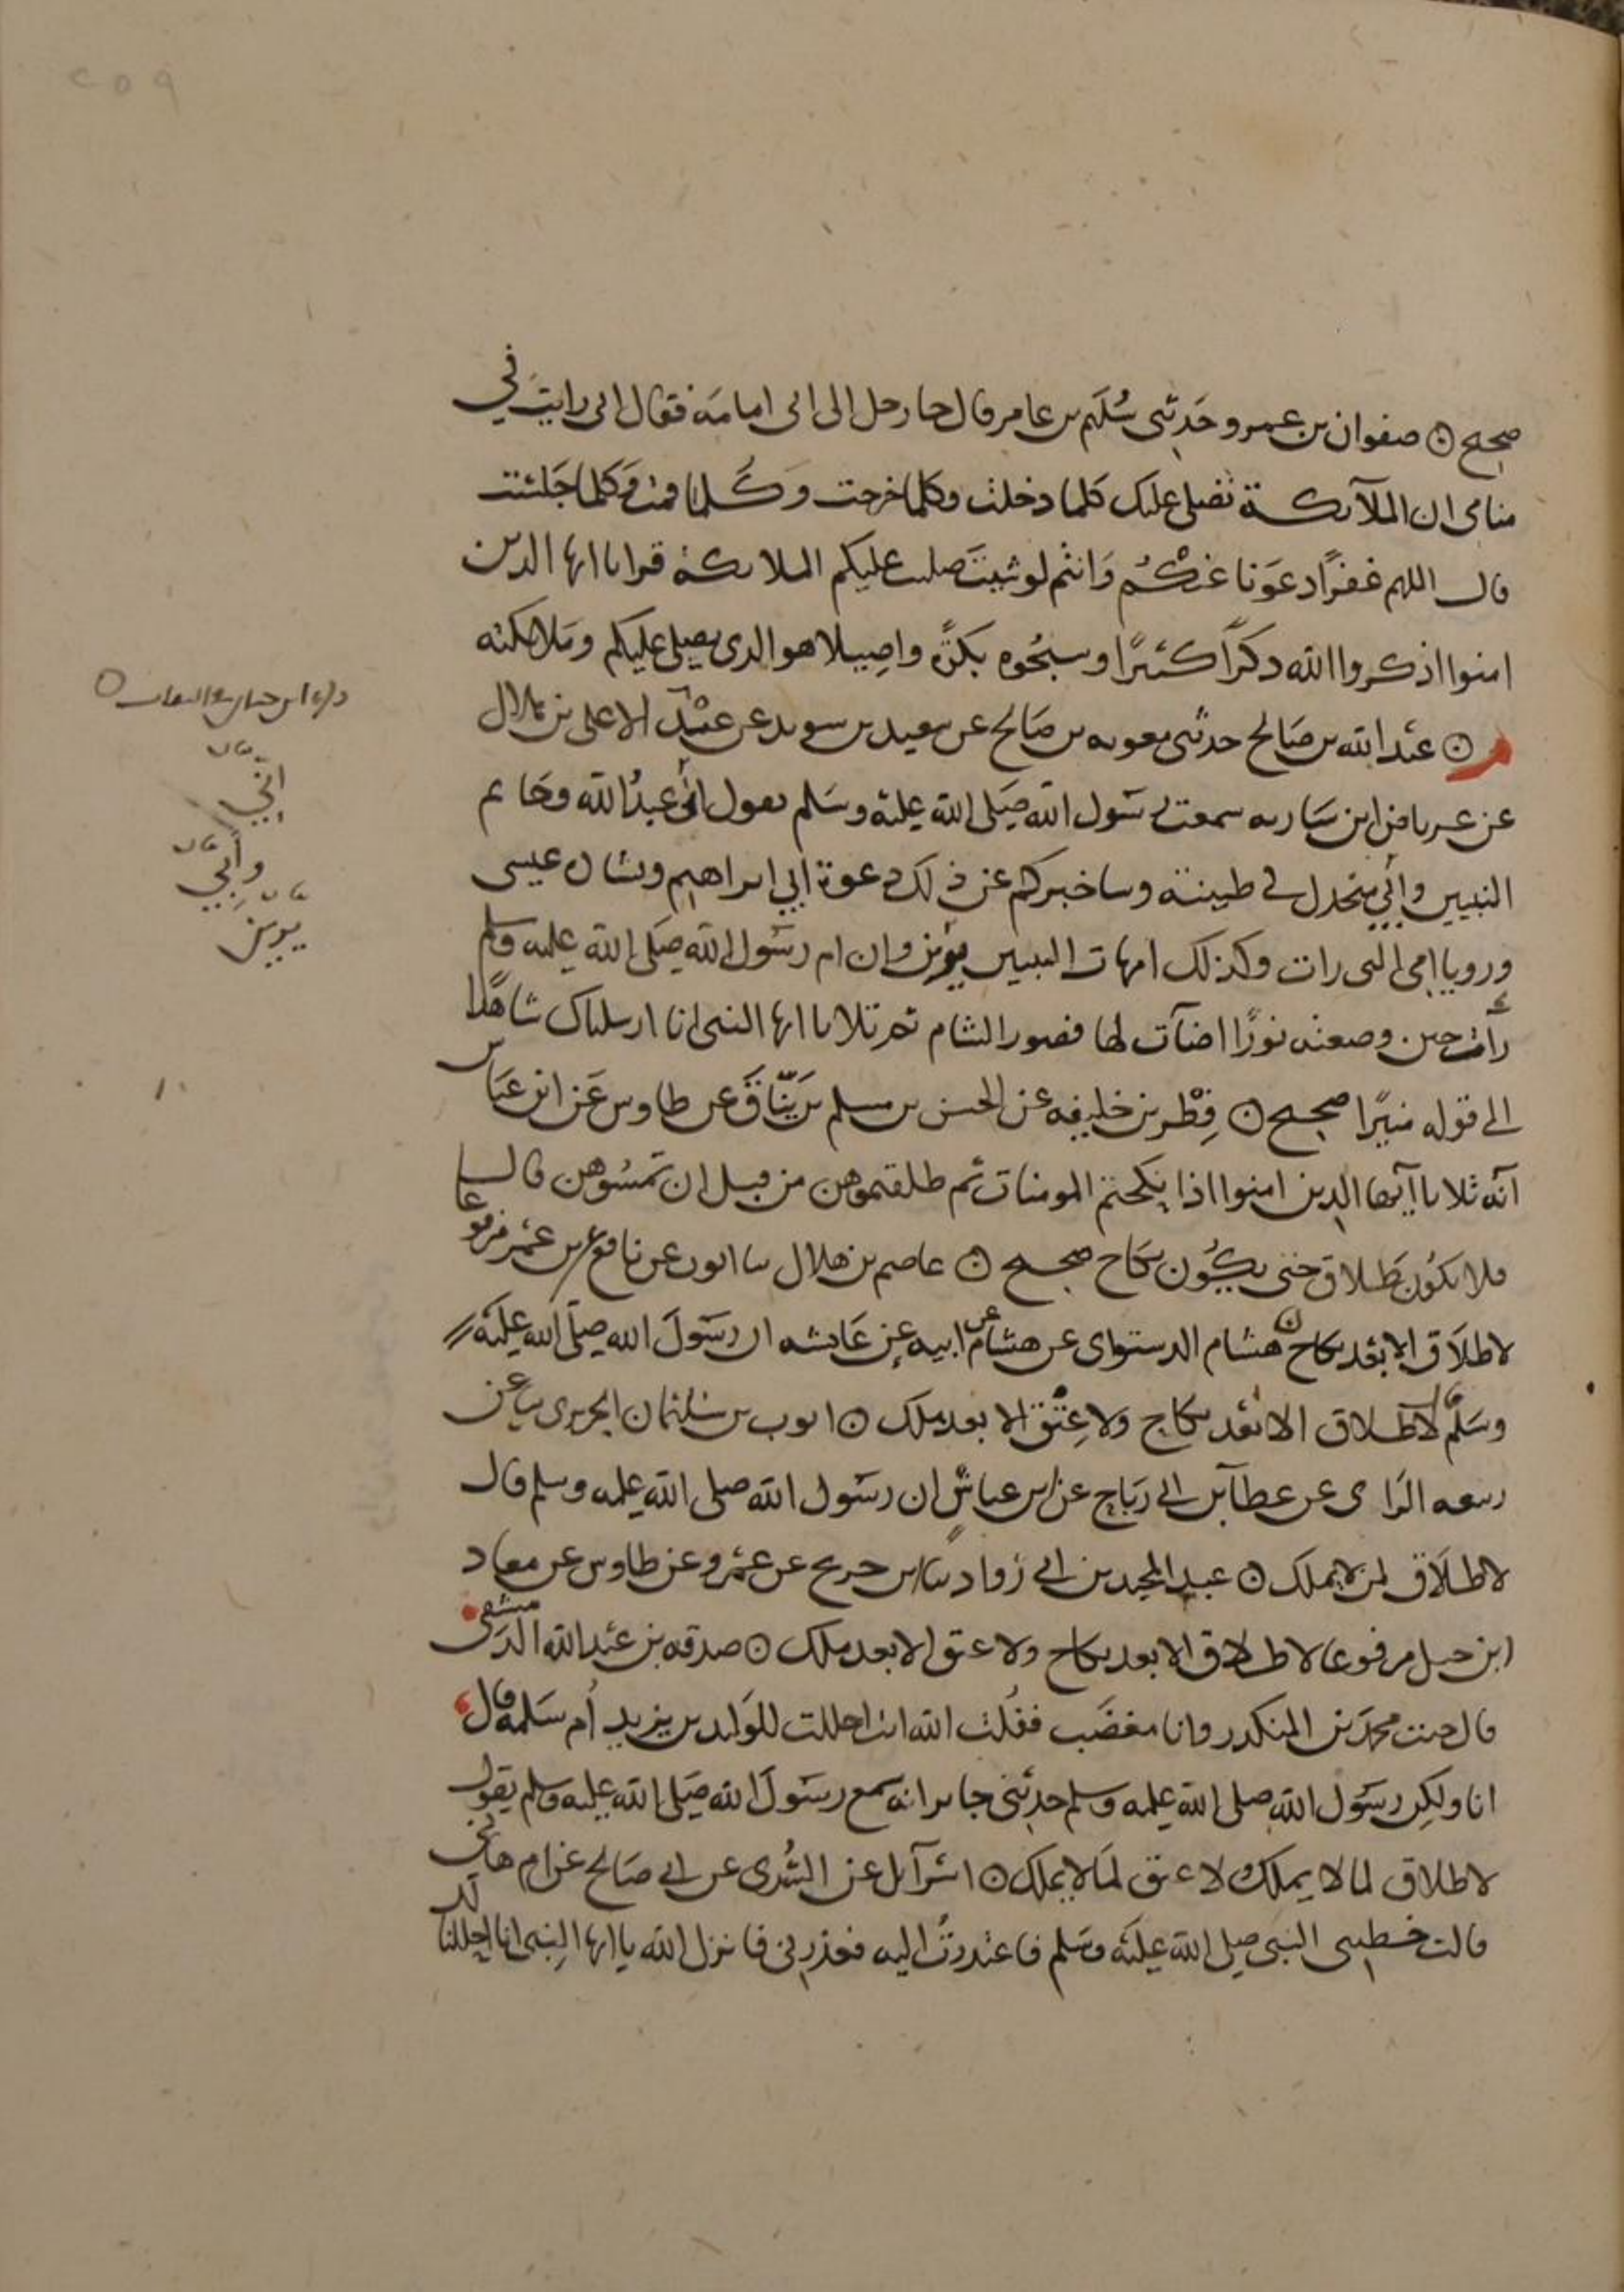 ٢٥٩
صحيح ۞ صفوان بن عمرو حدثني سُليم بن عامر قال جا رجل الى ابي امامة فقال اني رايت في
منامي ان الملآئكة تصلي عليك كلما دخلت وكلما خرجت وكلما قمت وكلما جلست
قال اللهم غفرًا دعونا عنكم وانتم لو شيتم صلت عليكم الملائكة ثم قرا يا ايها الذين
امنوا اذكروا الله ذكرًا كثيرًا وسبحوه بكرة واصيلا هو الذي يصلي عليكم وملائكته
۞ عبد الله بن صالح حدثني معوية بن صالح عن سعيد بن سويد عن عبد الاعلى بن هلال
عن عرباض ابن سارية سمعت رسول الله صلى الله عليه وسلم يقول اني عبد الله وخاتم
النبيين وأبي منجدل في طينته وساخبركم عن ذلك دعوة ابي ابراهيم وبشارة عيسى
ورويا امي التي رات وكذلك امهات النبيين يرين وان ام رسول الله صلى الله عليه وسلم
رأت حين وضعته نورًا اضآت لها قصور الشام ثم تلا يا ايها النبي انا ارسلناك شاهدًا
الى قوله منيرًا صحيح ۞ فِطْر بن خليفه عن الحسن بن مسلم بن يَنّاق عن طاوس عن ابن عباس
انه تلا يا أيها الذين امنوا اذا نكحتم المومنات ثم طلقتموهن من قبل ان تمسوهن قال
فلا يكون طلاق حتى يكون نكاح صحيح ۞ عاصم بن هلال نا ايوب عن نافع عن ابن عمر مرفوعا
لا طلاق الا بعد نكاح ۞ هشام الدستواي عن هشام عن ابيه عن عايشه ان رسول الله صلى الله عليه
وسلم قال لا طلاق الا بعد نكاح ولا عتق الا بعد ملك ۞ ايوب بن سليمان الجريري نا عن
ربيعه الراي عن عطآ بن ابي رباح عن ابن عباس ان رسول الله صلى الله عليه وسلم قال
لا طلاق لمن لا يملك ۞ عبد المجيد بن ابي رواد نا ابن جريج عن عمرو عن طاوس عن معاذ
ابن جبل مرفوعا لا طلاق الا بعد نكاح ولا عتق الا بعد ملك ۞ صدقه بن عبد الله الدمشقي
قال جئت محمد بن المنكدر وانا مغضب فقلت الله انت احللت للوليد بن يزيد أم سلمه قال
انا ولكن رسول الله صلى الله عليه وسلم حدثني جابر انه سمع رسول الله صلى الله عليه وسلم يقول
لا طلاق لما لا يملك ولا عتق لما لا يملك ۞ اسرآيل عن السُدي عن ابي صالح عن ام هاني
قالت خطبني النبي صلى الله عليه وسلم فاعتذرتُ اليه فعذرني فانزل الله يا ايها النبي انا احللنا لك
إني
بيان
وأبي
بيان
يرين
بيان